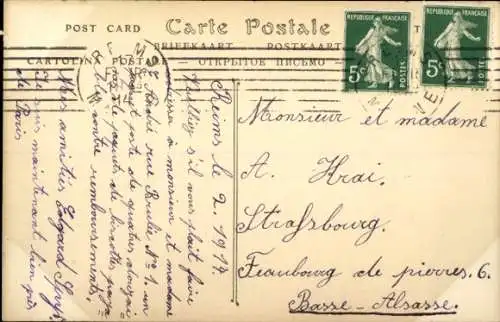 POST CARD Carte Postale
BRIEFKAART POSTKAART
CARTOLINA POSTALE ОТКРЫТОЕ ПИСЬМО
RÉPUBLIQUE FRANÇAISE
5c POSTES
RÉPUBLIQUE FRANÇAISE
5c POSTES
Reims le 2. 1914
Veuillez s'il vous plait faire
à monsieur et madame
André rue Brulée No 1. un
de poste de quatre
contre remboursement.
Mes amitiés Edgard
Je suis maintenant bien près
de Paris
Monsieur et madame
A. Hrai.
Strassbourg.
Feaubourg de pierres. 6.
Basse-Alsasse.